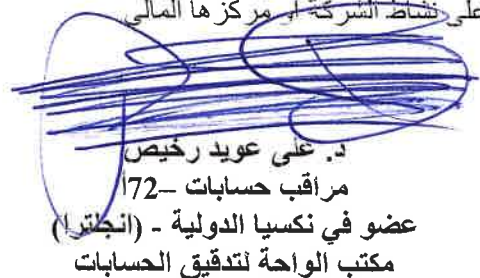 على نشاط الشركة أو مركزها المالي
د. علي عويد رخيص
مراقب حسابات –72أ
عضو في نكسيا الدولية - (انجلترا)
مكتب الواحة لتدقيق الحسابات